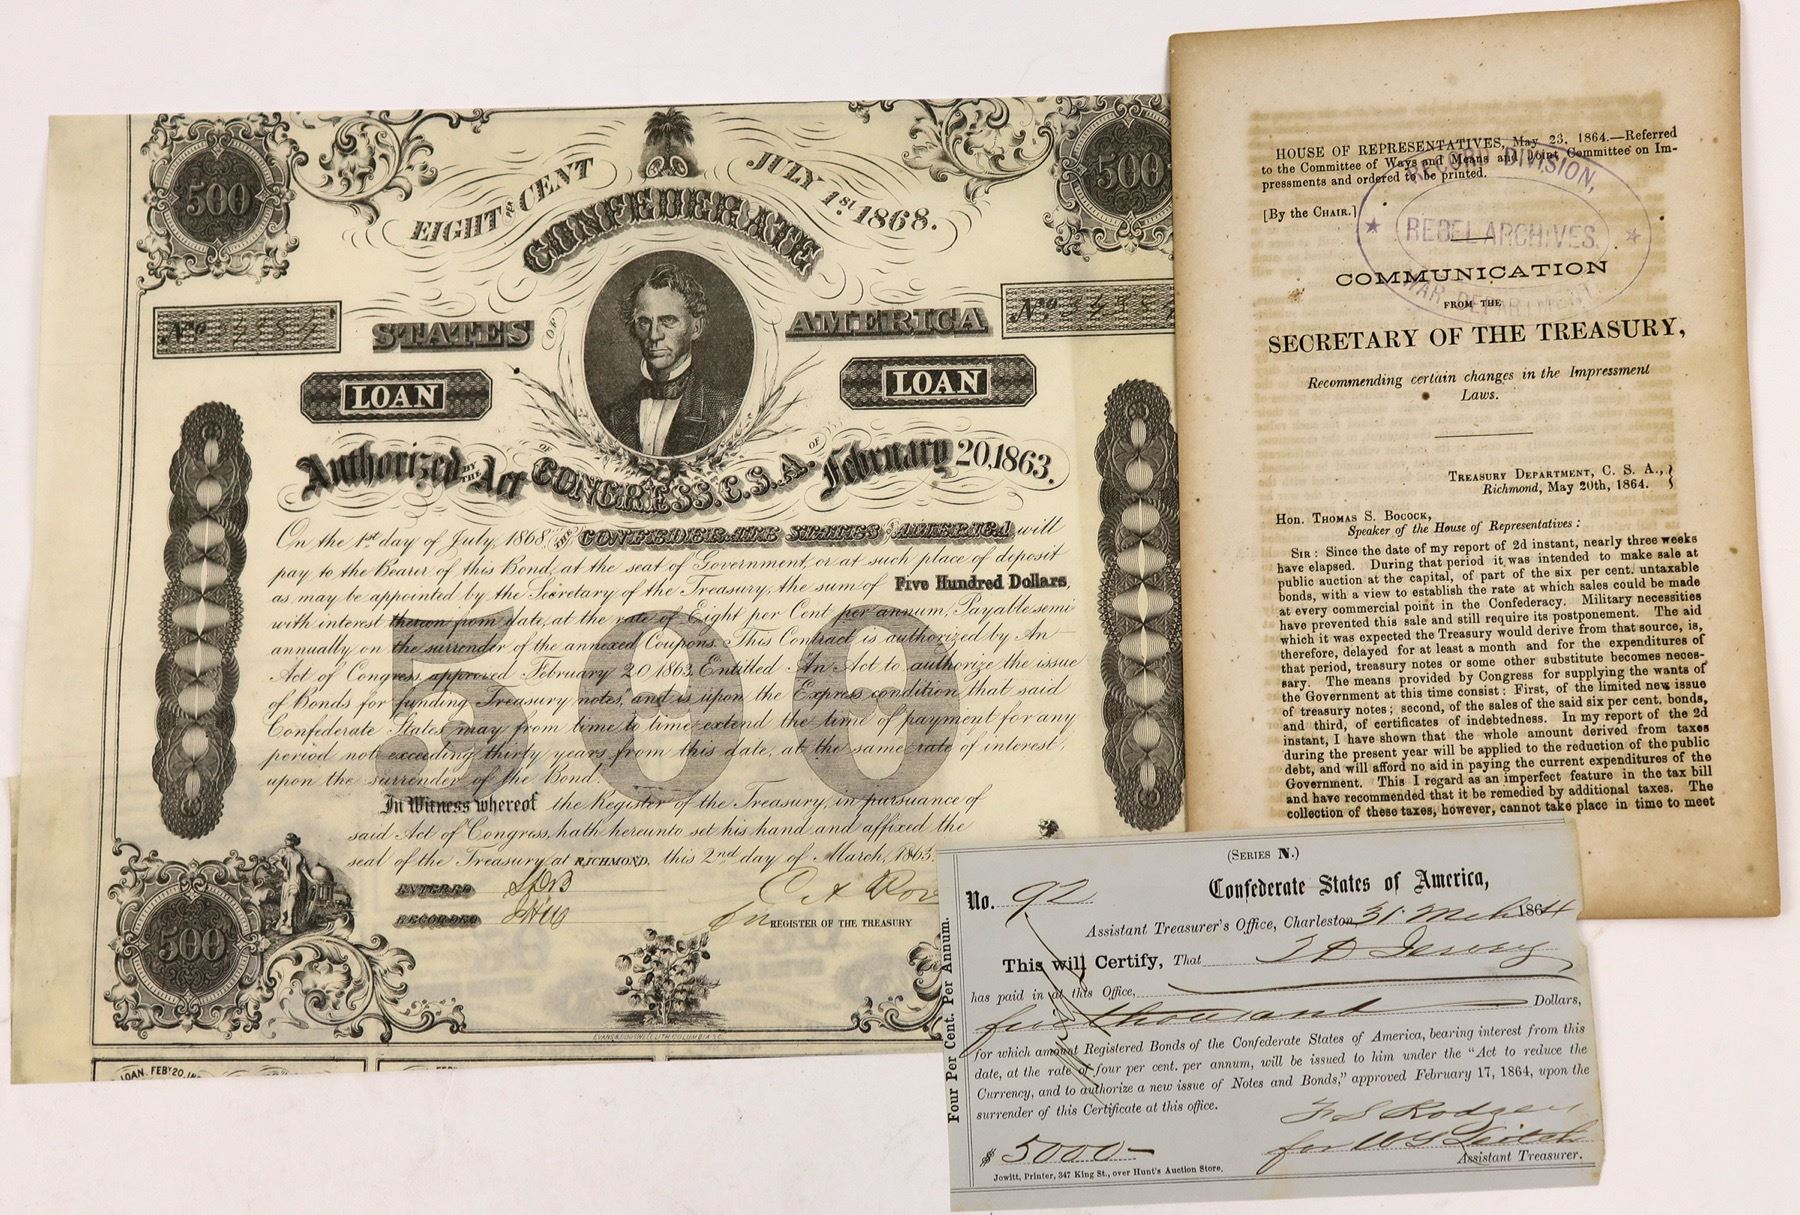 500
500
EIGHT PR CENT
JULY 1st 1868.
CONFEDERATE
No
No
STATES OF AMERICA
LOAN
LOAN
Authorized BY THE Act OF CONGRESS, C.S.A. OF February 20, 1863.
On the 1st day of July, 1868, THE CONFEDERATE STATES OF AMERICA will
pay to the Bearer of this Bond, at the seat of Government, or at such place of deposit
as may be appointed by the Secretary of the Treasury, the sum of Five Hundred Dollars,
with interest thereon from date, at the rate of Eight per Cent per annum, Payable semi
annually on the surrender of the annexed Coupons. This Contract is authorized by An
Act of Congress, approved February 20 1863, Entitled "An Act to authorize the issue
of Bonds for funding Treasury notes," and is upon the Express condition that said
Confederate States may from time to time extend the time of payment for any
period not exceeding thirty years from this date, at the same rate of interest,
upon the surrender of the Bond.
500
In Witness whereof the Register of the Treasury, in pursuance of
said Act of Congress, hath hereunto set his hand and affixed the
seal of the Treasury, at RICHMOND, this 2nd day of March, 1863.
ENTERED
RECORDED
REGISTER OF THE TREASURY
500
EVANS & COGSWELL LITH. COLUMBIA S.C.
LOAN, FEBY 20,
HOUSE OF REPRESENTATIVES, May 23, 1864.—Referred
to the Committee of Ways and Means and Joint Committee on Im-
pressments and ordered to be printed.
[By the CHAIR.]
DIVISION,
REBEL ARCHIVES.
WAR DEPARTMENT.
COMMUNICATION
FROM THE
SECRETARY OF THE TREASURY,
Recommending certain changes in the Impressment
Laws.
TREASURY DEPARTMENT, C. S. A., }
Richmond, May 20th, 1864. }
HON. THOMAS S. BOCOCK,
Speaker of the House of Representatives :
SIR : Since the date of my report of 2d instant, nearly three weeks
have elapsed. During that period it was intended to make sale at
public auction at the capital, of part of the six per cent. untaxable
bonds, with a view to establish the rate at which sales could be made
at every commercial point in the Confederacy. Military necessities
have prevented this sale and still require its postponement. The aid
which it was expected the Treasury would derive from that source, is,
therefore, delayed for at least a month and for the expenditures of
that period, treasury notes or some other substitute becomes neces-
sary. The means provided by Congress for supplying the wants of
the Government at this time consist : First, of the limited new issue
of treasury notes ; second, of the sales of the said six per cent. bonds,
and third, of certificates of indebtedness. In my report of the 2d
instant, I have shown that the whole amount derived from taxes
during the present year will be applied to the reduction of the public
debt, and will afford no aid in paying the current expenditures of the
Government. This I regard as an imperfect feature in the tax bill
and have recommended that it be remedied by additional taxes. The
collection of these taxes, however, cannot take place in time to meet
(SERIES N.)
No. 92
Confederate States of America,
Assistant Treasurer's Office, Charleston 31 Mch 1864
This will Certify, That
has paid in at this Office,
five thousand Dollars,
for which amount Registered Bonds of the Confederate States of America, bearing interest from this
date, at the rate of four per cent. per annum, will be issued to him under the "Act to reduce the
Currency, and to authorize a new issue of Notes and Bonds," approved February 17, 1864, upon the
surrender of this Certificate at this office.
$ 5000-
for
Assistant Treasurer.
Jowitt, Printer, 347 King St., over Hunt's Auction Store.
Four Per Cent. Per Annum.